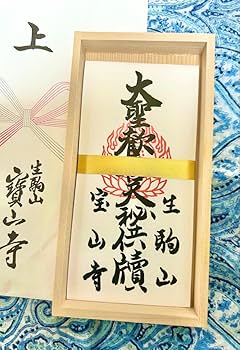 上
生駒山
寳山寺
大聖歓喜天秘供牘
生駒山
宝山寺